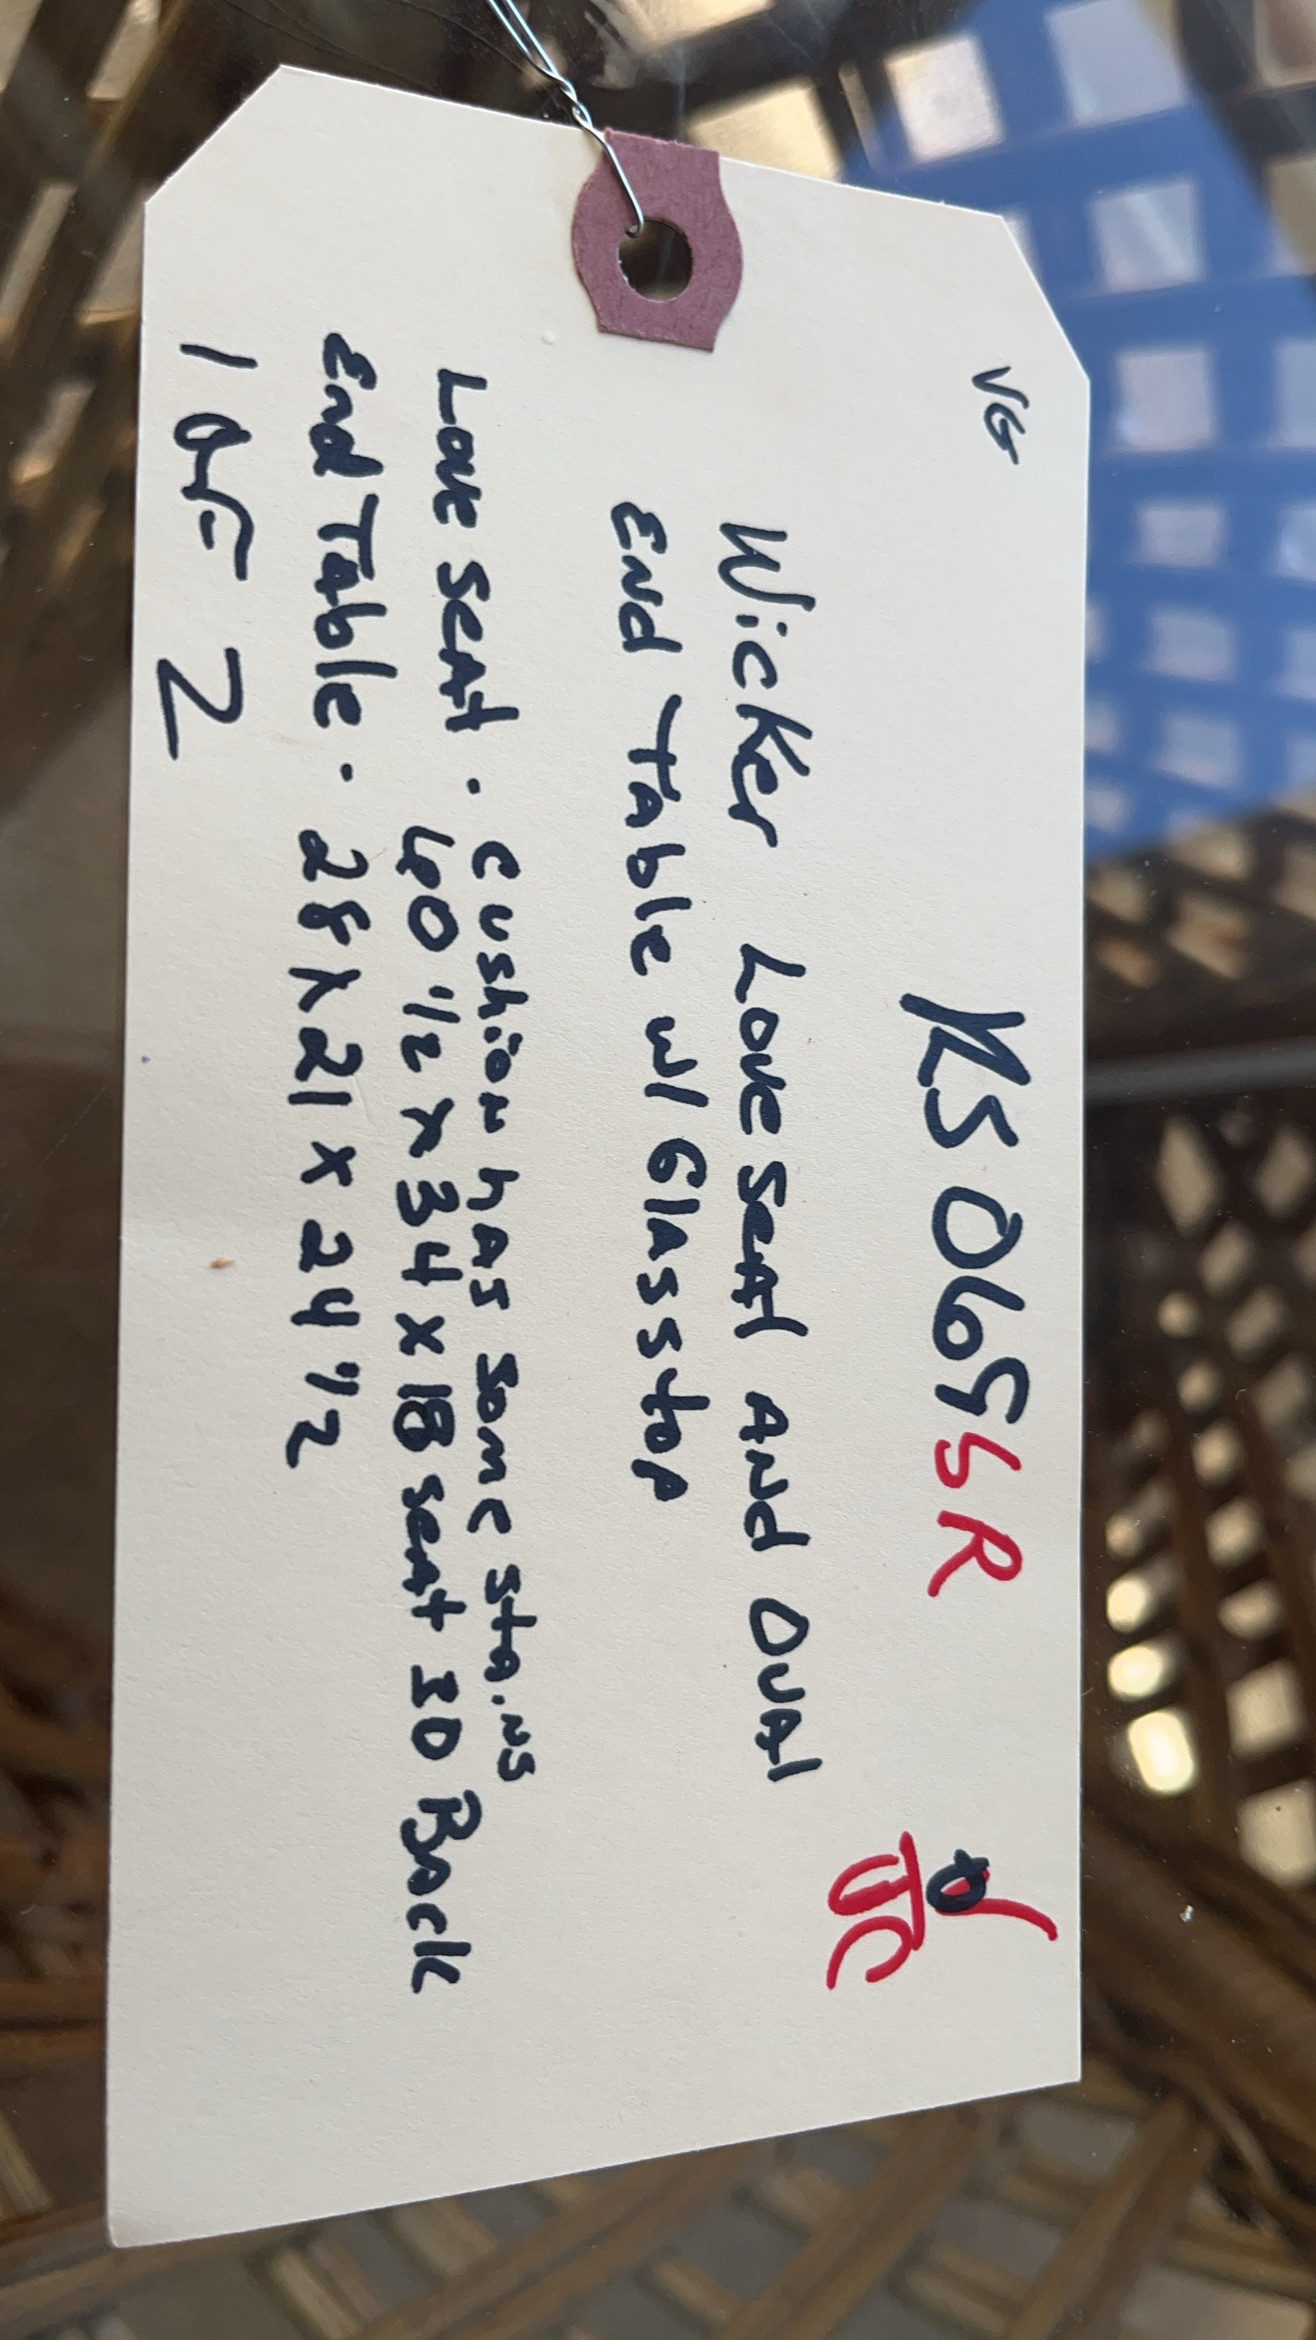 VG
RS0695SR
JC
Wicker Love Seat And Oval
End Table w/ Glass top
Love Seat . Cushion has some stains
40 1/2 x 34 x 18 seat 30 Back
End Table . 28 x 21 x 24 1/2
1 OF 2